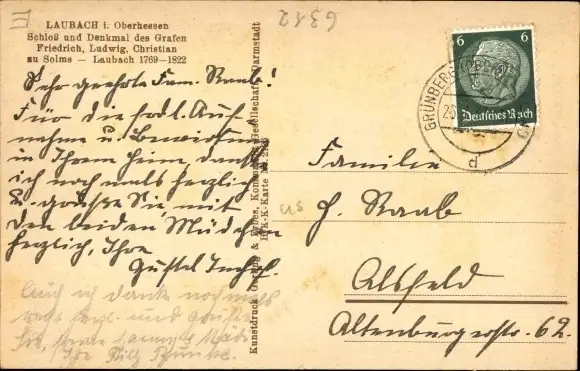 LAUBACH i. Oberhessen
Schloß und Denkmal des Grafen
Friedrich, Ludwig, Christian
zu Solms — Laubach 1769—1822
6312
Sehr geehrte Fam. Raab!
Für die frdl. Auf-
nahme u. Bewirtung
in Ihrem Heim, dank
ich nochmals herzlich
u. grüße Sie, mit
den beiden Mädchen
herzlich, Ihre
Gustel
Auch ich dank nochmals
recht herzl. und grüße
Sie,
Kunstdruck
Gesellschaft Darmstadt
H.K.K-Karte
6
6
Deutsches Reich
GRÜNBERG
d
Familie
H. Raab
Alsfeld
Altenburgerstr. 62.